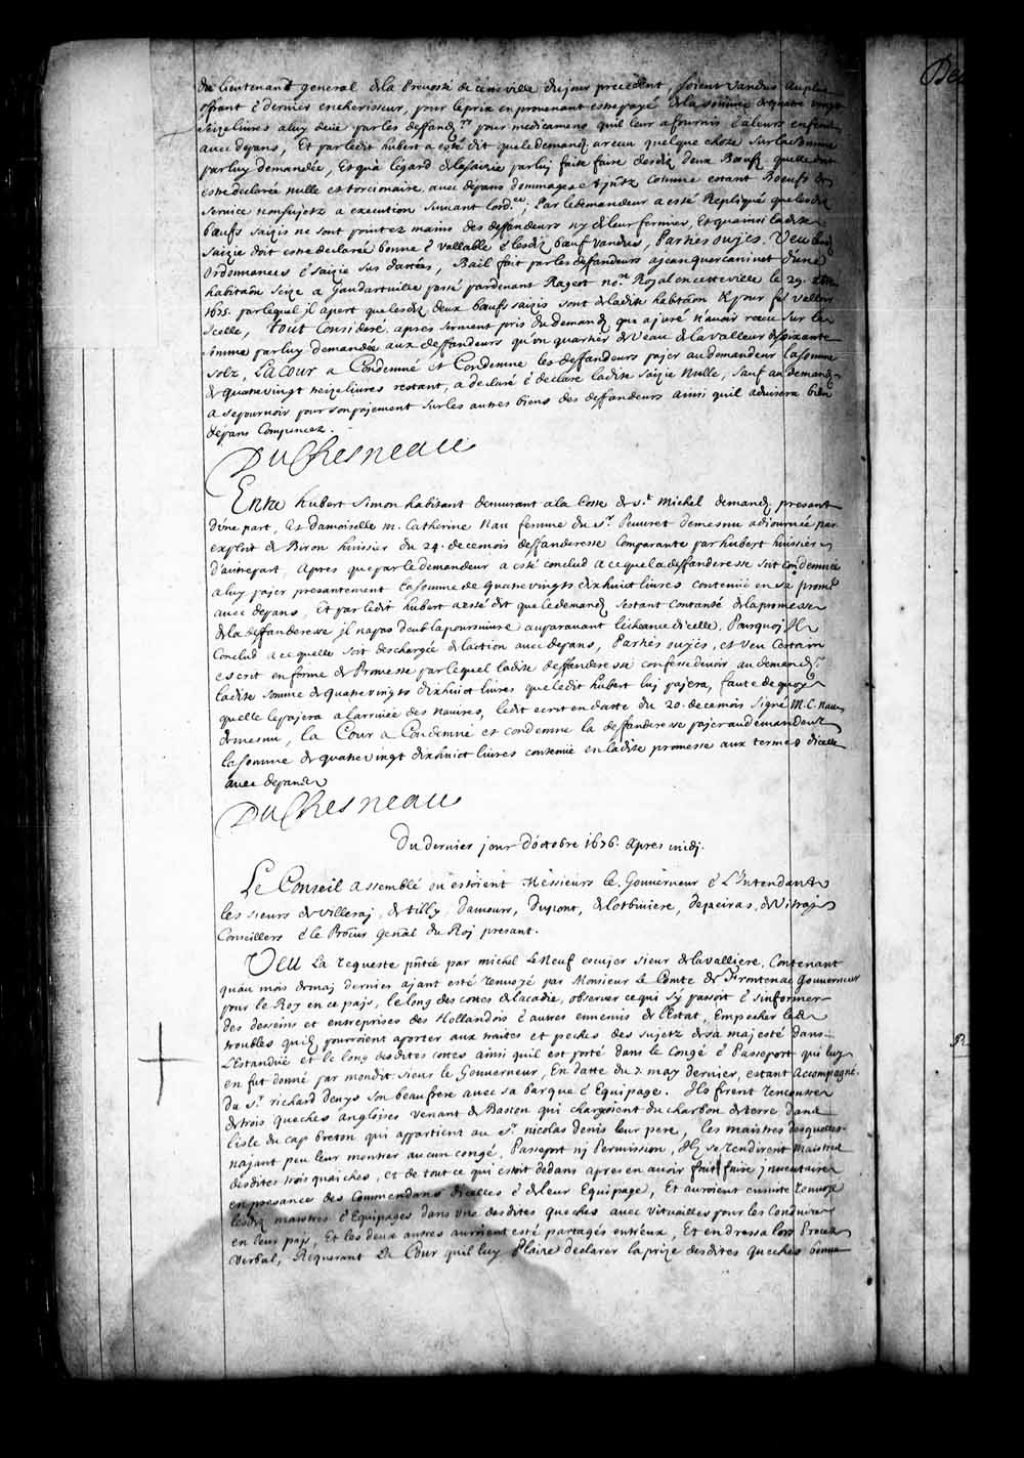 du lieutenant general de la Prevosté de cette ville du jour precedent, soient vandus au plus
offrant & dernier encherisseur, pour le prix en provenant estre payé de la somme de quatre vingt
seize livres a luy deüe par les deffand.rs pour medicamens quil leur a fournis & a leurs enfans
avec depans, Et par ledit hubert a esté dit que le demand.r a receu quelque chose sur la somme
par luy demandée, Et qu'a l'égard de la saizie par luy faite faire desd. deux Bœufs quelle doit
estre declarée nulle et torcionaire avec depans dommages et jntz comme estant Bœufs de
service non sujetz a execution suivant lord.ce; Par le demandeur a esté Repliqué que lesd.
bœufs saizis ne sont point ez mains des deffandeurs ny de leur fermier, Et quainsi ladite
saizie doit estre declarée bonne & vallable & lesd. bœufs vandus, Parties ouyes. Veu lesd.
Ordonnances & saizie sus dattées, Bail fait par les deffandeurs a jean quercaninet d'une
habitaôn seize a Gaudartville passé pardevant Rageot no.re Royal en cette ville le 29.
1675. par lequel jl apert que lesd. deux bœufs saizis sont de ladite habitaôn & pour fe valloir
jcelle, Tout Consideré. apres serment pris du demand.r qui a juré n'avoir receu sur la
somme par luy demandée aux deffandeurs qu'un quartier de veau de la valleur de soixante
solz, La Cour a Condemné et Condemne les deffandeurs payer au demandeur la somme
de quatre vingt treize livres restant, a declaré & declare ladite saizie Nulle, sauf au demand.r
a se pourvoir pour son payement sur les autres biens des deffandeurs ainsi quil advisera bien
depans Compencez.
DuChesneau
Entre hubert Simon habitant demurant a la Coste de S.t Michel demand.r presant
d'une part, Et damoiselle m. Catherine Nau femme du S.r Peuvret demesnu adjournée par
exploit de Biron huissier du 24. de ce mois deffanderesse Comparante par hubert huissier
d'autre part, Apres que par le demandeur a esté conclud a ce que la deffanderesse soit condemnée
a luy payer presantement la somme de quatre vingts dixhuict livres contenüe en sa prom.e
avec depans, Et par ledit hubert a esté dit que le demand.r sestant contanté de la promesse
de la deffanderesse jl na pas deub la poursuivre auparavant lecheance dicelle, Pourquoy Jl
Conclud a ce quelle soit deschargée de laction avec depans, Parties ouyes, et Veu Certain
escrit en forme de Promesse par lequel ladite deffanderesse confesse devoir au demand.r
ladite somme de quatre vingts dixhuict livres que ledit hubert luy payera, faute de quoy
quelle le payera a larrivée des navires, ledit ecrit en datte du 20. de ce mois signé M. C. Nau
demesnu, La Cour a Condemné et condemne la deffanderesse payer au demandeur
la somme de quatre vingt dixhuict livres contenüe en ladite promesse aux termes dicelle
avec depans
DuChesneau
Du dernier jour d'octobre 1676. apres midy.
Le Conseil assemblé ou estoient Messieurs le Gouverneur & L'Intendant
les sieurs de Villeray, de tilly, Damours, Dupont, de Lotbiniere, depeiras, de Vitray
Conseillers & le Procur. genãl du Roy presant.
Veu La requeste pntée par michel LeNeuf escuyer sieur de la valliere, Contenant
quau mois de may dernier ayant esté renvoyé par Monsieur Le Comte de Frontenac Gouverneur
pour le Roy en ce pays, le long des costes de lacadie, observer ce qui s'y passoit & s'informer
des desseins et entreprises des Hollandois & autres ennemis de l'Estat, Empescher les
troubles quilz pourroient aporter aux traites et peches des sujetz de sa majesté dans
l'estandüe et le long desdites costes ainsi quil est porté dans le Congé & Passeport qui luy
en fut donné par mondit sieur le Gouverneur, En datte du 2. may dernier, estant Accompagné
du S.r richard denys son beaufrere avec sa barque & Equipage. Jls firent rencontre
de trois queches angloises venant de Baston qui chargeoient du charbon de terre dans
l'isle du cap breton qui appartient au S.r nicolas denis leur pere, les maistres desquelles
nayant peu leur monstrer aucun congé, Passeport ny Permission, Jlz se rendirent maistres
desdites trois quaiches, et de tout ce qui estoit dedans apres en avoir fait faire jnventaire
en presance des Commendans dicelles & de leur Equipage, Et auroient ensuite renvoyé
lesd. maistres & Equipages dans une desdites queches avec vituailles pour les Conduire
en leur pays, Et les deux autres auroient esté partagés entr'eux, Et en dressa lors Procez
verbal, Requerant La Cour quil luy Plaise declarer la prize desdites queches bonne